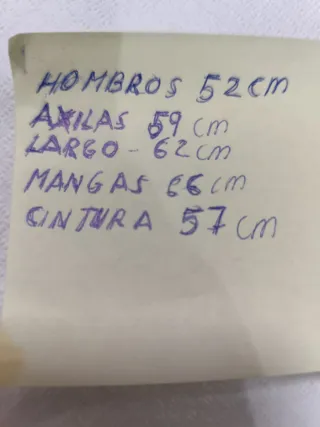 HOMBROS 52 cm
AXILAS 59 cm
LARGO - 62 cm
MANGAS 66 cm
CINTURA 57 cm